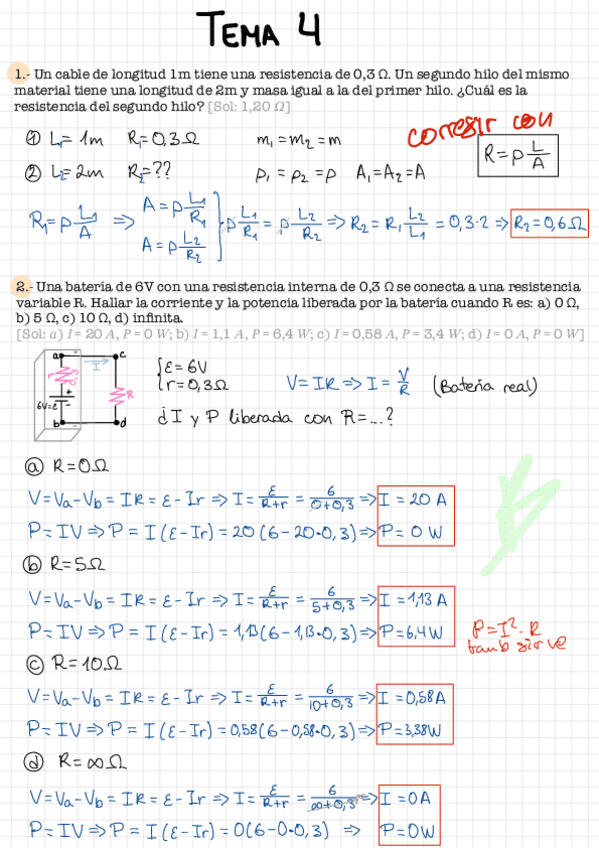 TEMA 4
1.- Un cable de longitud 1m tiene una resistencia de 0,3 Ω. Un segundo hilo del mismo
material tiene una longitud de 2m y masa igual a la del primer hilo. ¿Cuál es la
resistencia del segundo hilo? [Sol: 1,20 Ω]
corregir con
① L₁= 1m R₁= 0,3Ω m₁ = m₂ = m
R = ρ L/A
② L₂= 2m R₂= ?? ρ₁ = ρ₂ = ρ A₁=A₂=A
R₁=ρ L₁/A ⇒ A = ρ L₁/R₁ A = ρ L₂/R₂ } ρ L₁/R₁ = ρ L₂/R₂ ⇒ R₂ = R₁ L₂/L₁ = 0,3·2 ⇒ R₂=0,6Ω
2.- Una batería de 6V con una resistencia interna de 0,3 Ω se conecta a una resistencia
variable R. Hallar la corriente y la potencia liberada por la batería cuando R es: a) 0 Ω,
b) 5 Ω, c) 10 Ω, d) infinita.
[Sol: a) I = 20 A, P = 0 W; b) I = 1,1 A, P = 6,4 W; c) I = 0,58 A, P = 3,4 W; d) I = 0 A, P = 0 W]
a c
I
r 0,3
R
6V=ε + -
b d
{ ε = 6V
r = 0,3Ω
V= IR ⇒ I = V/R (Batería real)
¿I y P liberada con R=...?
ⓐ R = 0Ω
V=Va-Vb = IR = ε - Ir ⇒ I= ε/R+r = 6/0+0,3 ⇒ I = 20 A
P= IV ⇒ P = I(ε-Ir) = 20(6-20·0,3) ⇒ P= 0 W
ⓑ R=5Ω
V=Va-Vb = IR = ε - Ir ⇒ I= ε/R+r = 6/5+0,3 ⇒ I = 1,13 A
P= IV ⇒ P = I(ε-Ir) = 1,13(6-1,13·0,3) ⇒ P=6,4W
P=I²·R
tamb sirve
ⓒ R=10Ω
V=Va-Vb = IR = ε - Ir ⇒ I= ε/R+r = 6/10+0,3 ⇒ I=0,58A
P= IV ⇒ P = I(ε-Ir) = 0,58(6-0,58·0,3) ⇒ P=3,38W
ⓓ R=∞Ω
V=Va-Vb = IR = ε - Ir ⇒ I= ε/R+r = 6/∞+0,3 ⇒ I =0A
P= IV ⇒ P = I(ε-Ir) = 0(6-0·0,3) ⇒ P=0W